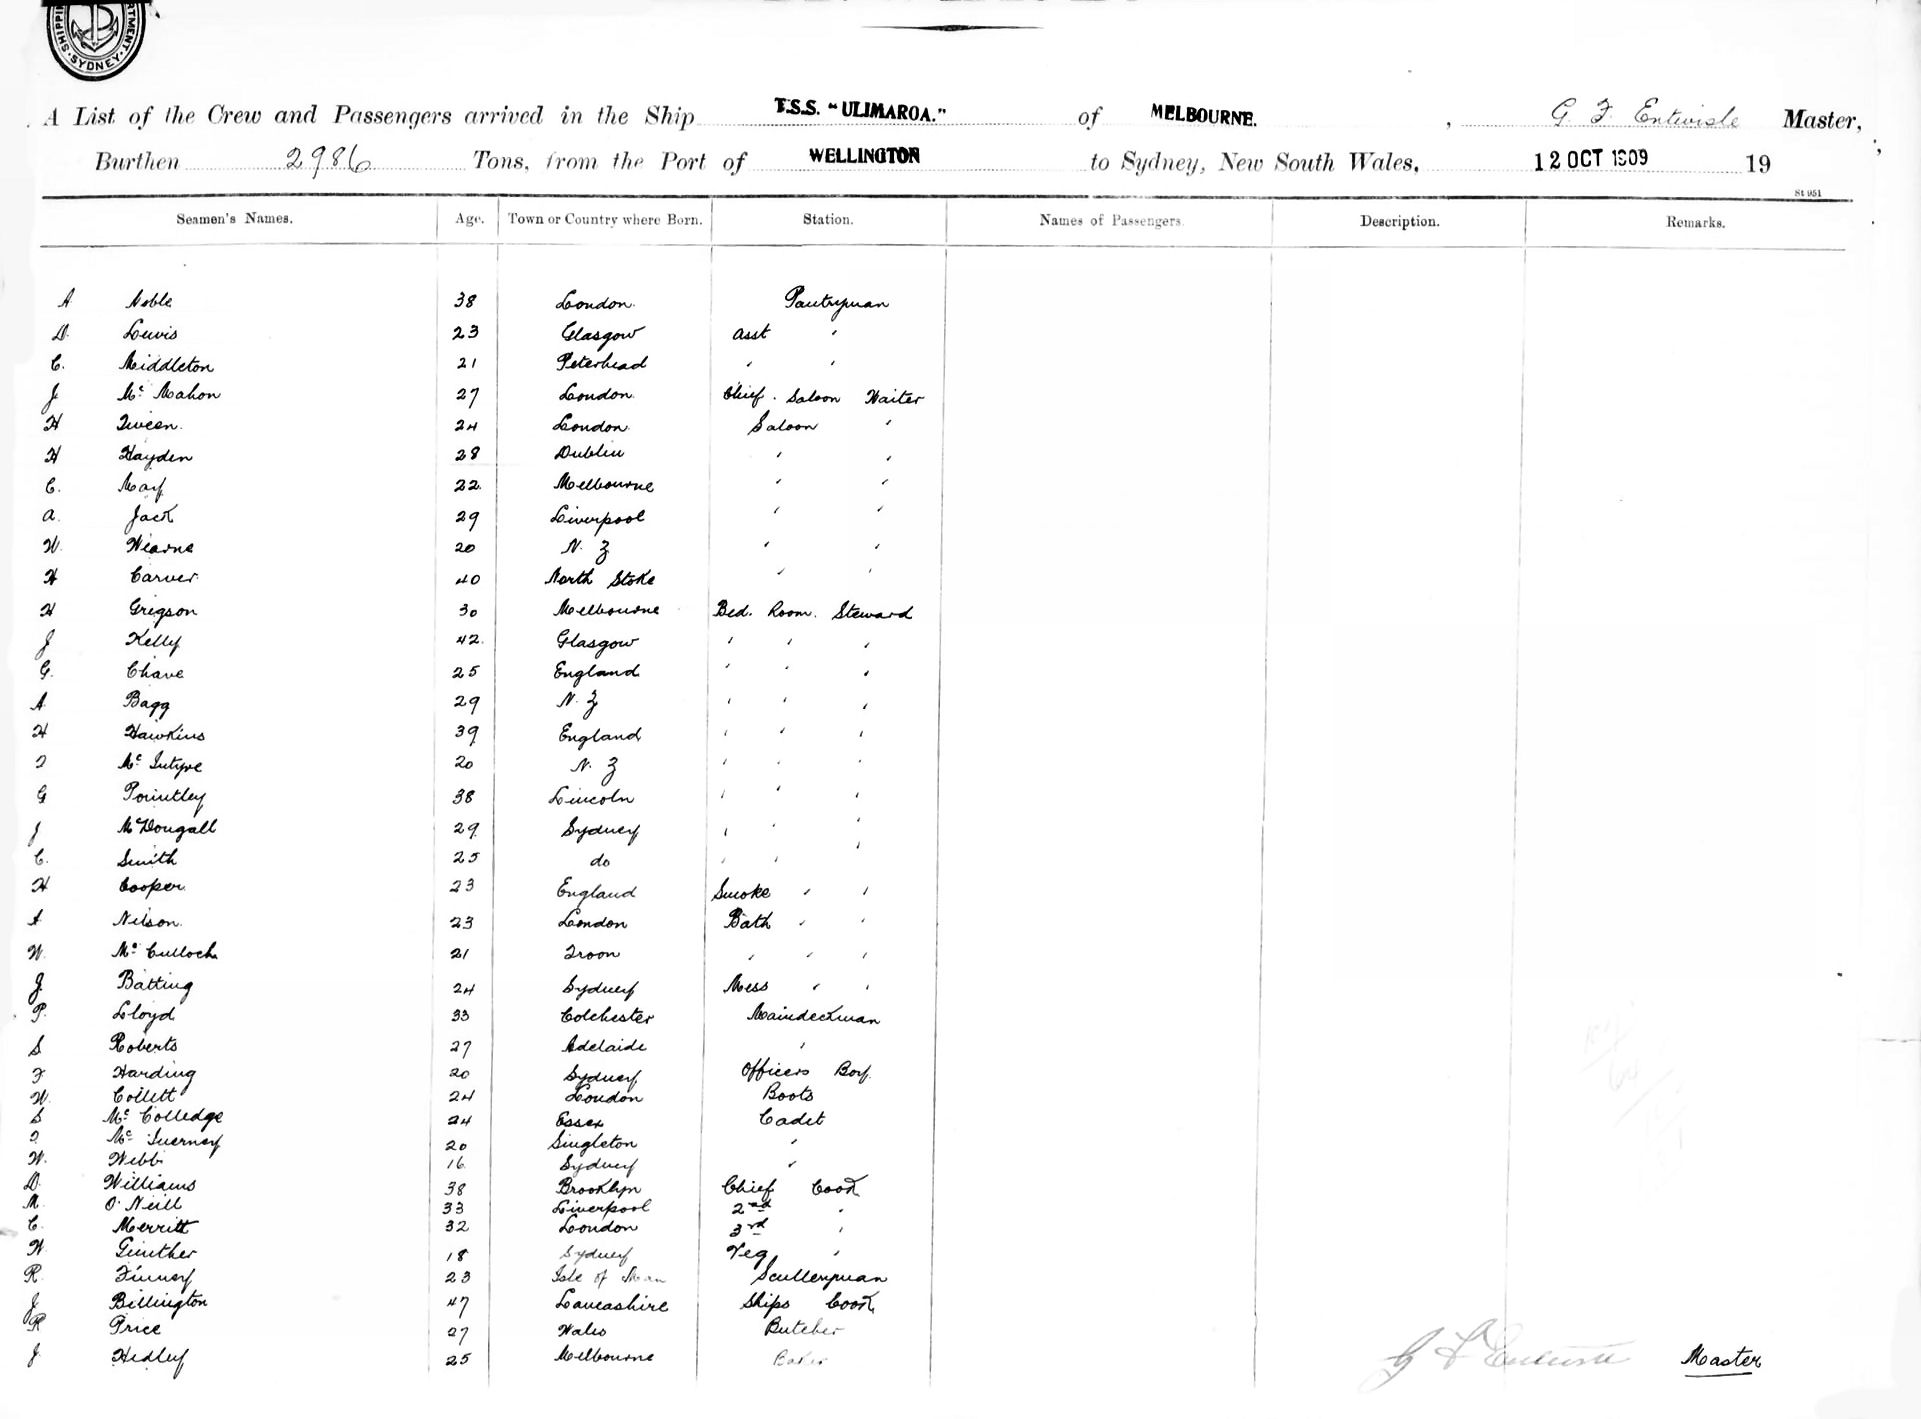 SHIPPING DEPARTMENT. SYDNEY.
A List of the Crew and Passengers arrived in the Ship T.S.S. "ULIMAROA." of MELBOURNE. , G. F. Entwisle Master,
Burthen 2986 Tons, from the Port of WELLINGTON to Sydney, New South Wales, 12 OCT 1909 19
St 951
Seamen's Names. Age. Town or Country where Born. Station. Names of Passengers. Description. Remarks.
A Noble 38 London. Pantryman
D. Lewis 23 Glasgow Asst "
C. Middleton 21 Peterhead " "
J Mc Mahon 27 London. Chief. Saloon Waiter
H Tween. 24 London. Saloon "
H Hayden 28 Dublin " "
C. May 22. Melbourne " "
A. Jack 29 Liverpool " "
W. Wearne 20 N. Z " "
H Carver. 40 North Stoke " "
H Gregson 30 Melbourne Bed. Room. Steward
J Kelly 42. Glasgow " " "
G. Chave 25 England " " "
A Bagg 29 N. Z " " "
H Hawkins 39 England " " "
T Mc Intyre 20 N. Z " " "
G Pointley 38 Lincoln " " "
J McDougall 29 Sydney " " "
C. Smith 25 do " " "
H Cooper 23 England Smoke " "
A Nelson. 23 London Bath " "
W. Mc Culloch 21 Troon " " "
J. Batting 24 Sydney Mess " "
P. Lloyd 33 Colchester Maindeckman
S Roberts 27 Adelaide "
F Harding 20 Sydney Officers Boy.
W. Collett 24 London Boots
S Mc Colledge 24 Essex Cadet
T. Mc Inerney 20 Singleton "
W. Webb 16 Sydney "
D. Williams 38 Brooklyn Chief Cook
M. O'Neill 33 Liverpool 2nd "
C. Merritt 32 London 3rd "
W. Ginther 18 Sydney Veg "
R. Finney 23 Isle of Man Sculleryman
J Billington 47 Lancashire Ships Cook
R Price 27 Wales Butcher
J. Hedley 25 Melbourne Baker
G F Entwisle Master